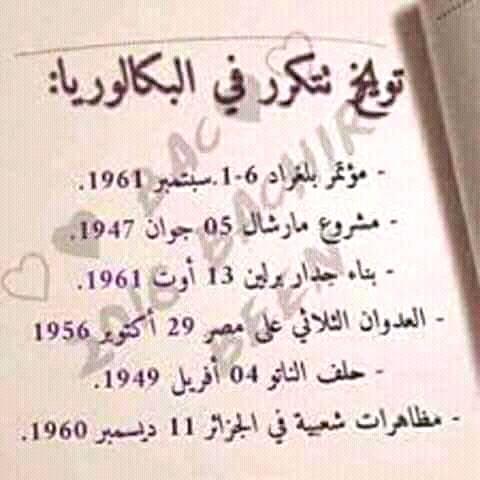 تواريخ تتكرر في البكالوريا:
- مؤتمر بلغراد 6-1.سبتمبر 1961.
- مشروع مارشال 05 جوان 1947.
- بناء جدار برلين 13 أوت 1961.
- العدوان الثلاثي على مصر 29 أكتوبر 1956
- حلف الناتو 04 أفريل 1949.
- مظاهرات شعبية في الجزائر 11 ديسمبر 1960.
BAC
2016 BACHIR
BEEN